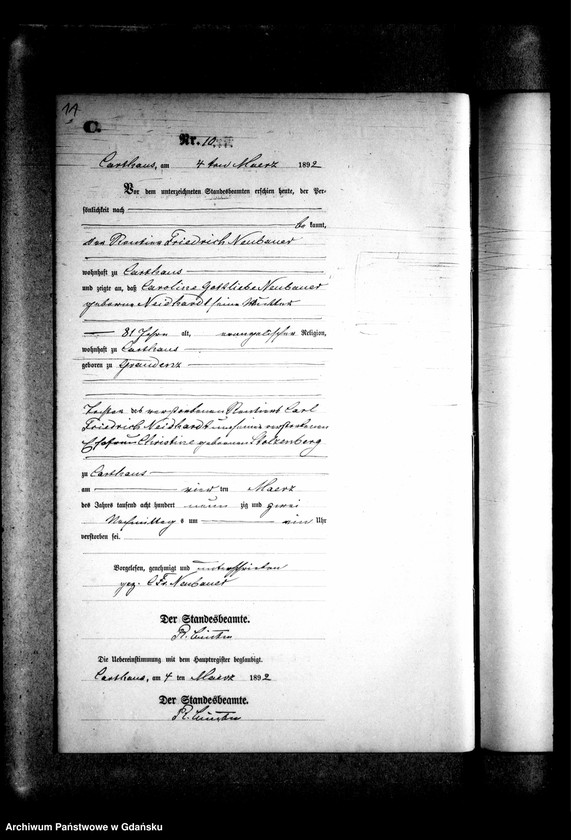 14
C.
Nr. 10.
Carthaus, am 4 ten Maerz 1892
Vor dem unterzeichneten Standesbeamten erschien heute, der Per-
sönlichkeit nach
be kannt,
der Rentier Friedrich Neubauer
wohnhaft zu Carthaus
und zeigte an, daß Caroline Gottliebe Neubauer
geborene Neidhardt seine Mutter
81 Jahre alt, evangelischer Religion,
wohnhaft zu Carthaus
geboren zu Graudenz
Tochter des verstorbenen Rentiers Carl
Friedrich Neidhardt und seiner verstorbenen
Ehefrau Christine geborenen Stolzenberg
zu Carthaus
am vier ten Maerz
des Jahrs tausend acht hundert neun zig und zwei
Nachmittag s um ein Uhr
verstorben sei.
Vorgelesen, genehmigt und unterschrieben
gez. Fr. Neubauer
Der Standesbeamte.
Die Uebereinstimmung mit dem Hauptregister beglaubigt.
Carthaus, am 4 ten Maerz 1892
Der Standesbeamte.
Archiwum Państwowe w Gdańsku